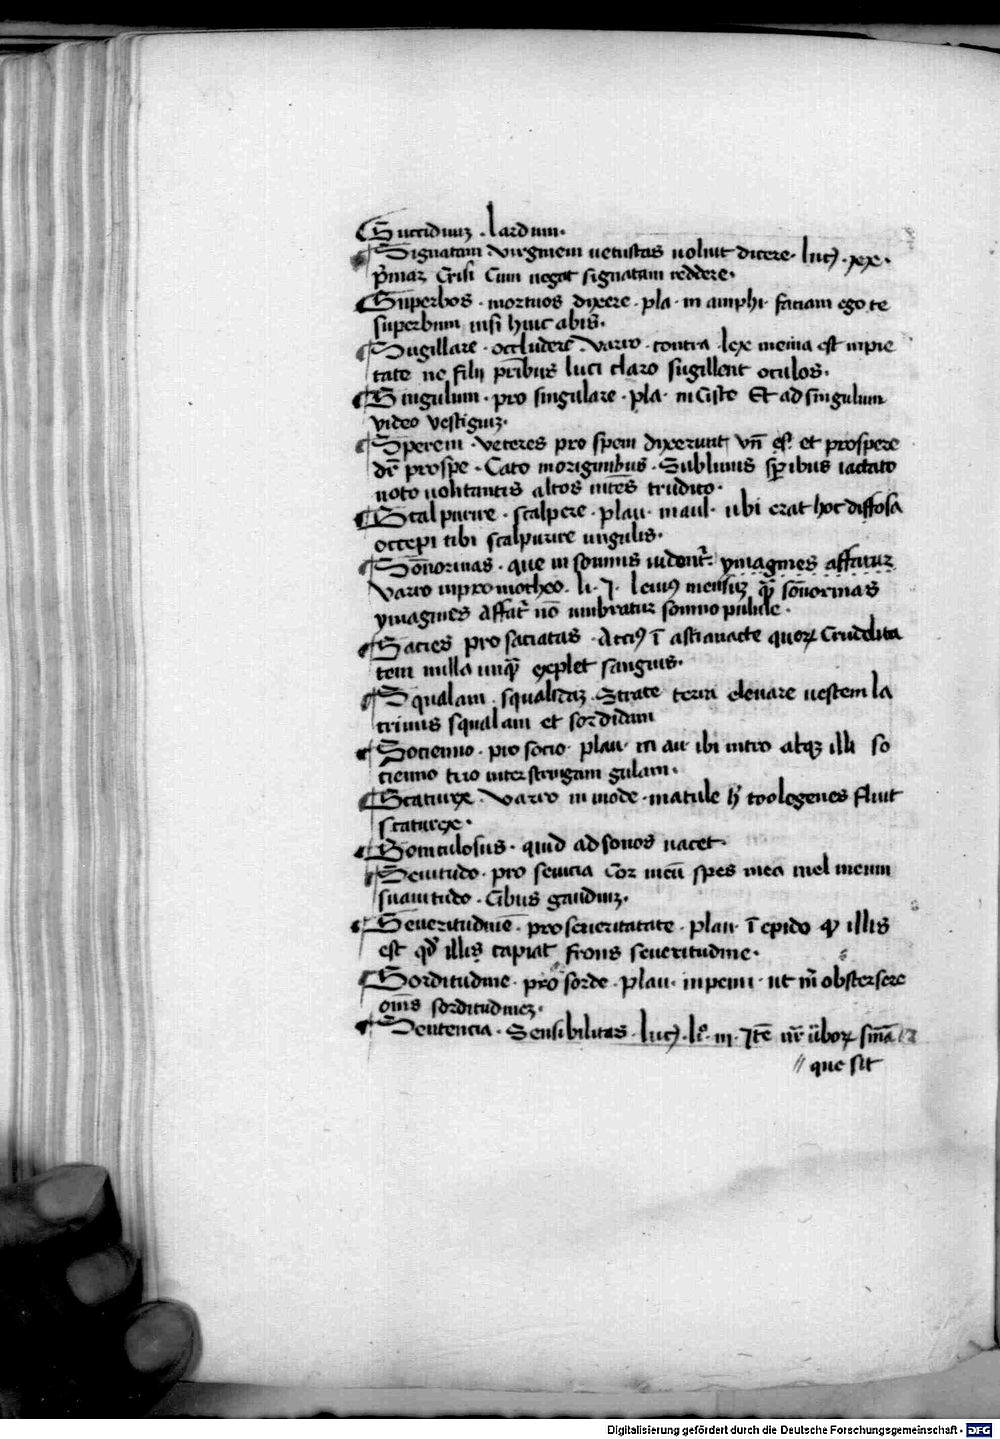 Succiduuʒ · lardum·
Signatam virginem uetustas uoluit dicere· luci9 ·xx·
p̄maʒ Crisi Cum negat signatam reddere·
Superbos · mortuos dixere · pla· in amphi· faciam ego te
superbum nisi hinc abis·
Sugillare · occludere · Varro · contra · lex menia est inpie
tate ne filij pr̄ibus luci claro sugillent oculos·
Singulum · pro singulare · pla· in Ciste Et ad singulum
video vestigiuʒ·
Sperem · veteres pro spem dixerunt vn̄ es̄t et prospere
dr̄ prospe · Cato moriginibus · Sublimis sp̄ibus iactato
noto uolitantis altos nitēs trudito·
Scalpurire · scalpere · plau· in aul· ubi erat hoc diffossa
occepi tibi scalpurire ungulis·
Sōnorinas · que in somnis uident̄r ymagines affatur
Varro inpromotheo · li· 7· leui9 mensuʒ q̄ sōnorinas
ymagines Affat̄ nō umbratur somno pulule ·
Sacies pro sacietas · Acci9 ī astianacte quorꝝ Crudelita
tem nulla unq̄ explet sanguis·
Squalam · squalidaʒ · Strate terra eleuare uestem la
crimis squalam et sordidam
Socienno · pro socio· plau· in au· ibi intro atqʒ illi so
cienno tuo inter stringam gulam·
Scaturex · Varro in mode · matule h̄ toologenes fluit
scaturex ·
Somculosus · quid ad sonos uacet·
Seuitudo · pro seuicia Cor meū spes mea mel meum
suauitudo · Cibus gaudiuʒ·
Seueritudinē · pro seueritatate · plau· ī epido qꝫ illis
est qd̄ illis capiat frons seueritudine·
Sorditudine · pro sorde · plau· inpenu · ut m̄ obstersere
om̄s sorditudineʒ·
Sentencia · Sensibilitas · luci9 · li° · III · Itē ur̄ ūborꝝ sn̄ia
// que sit
Digitalisierung gefördert durch die Deutsche Forschungsgemeinschaft - DFG